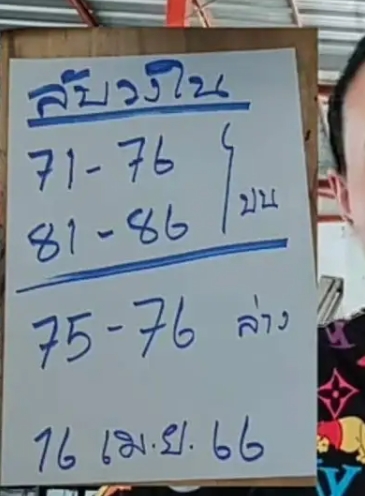 ลับวงใน
71-76
81-86 บน
75-76 ล่าง
16 เม.ย. 66